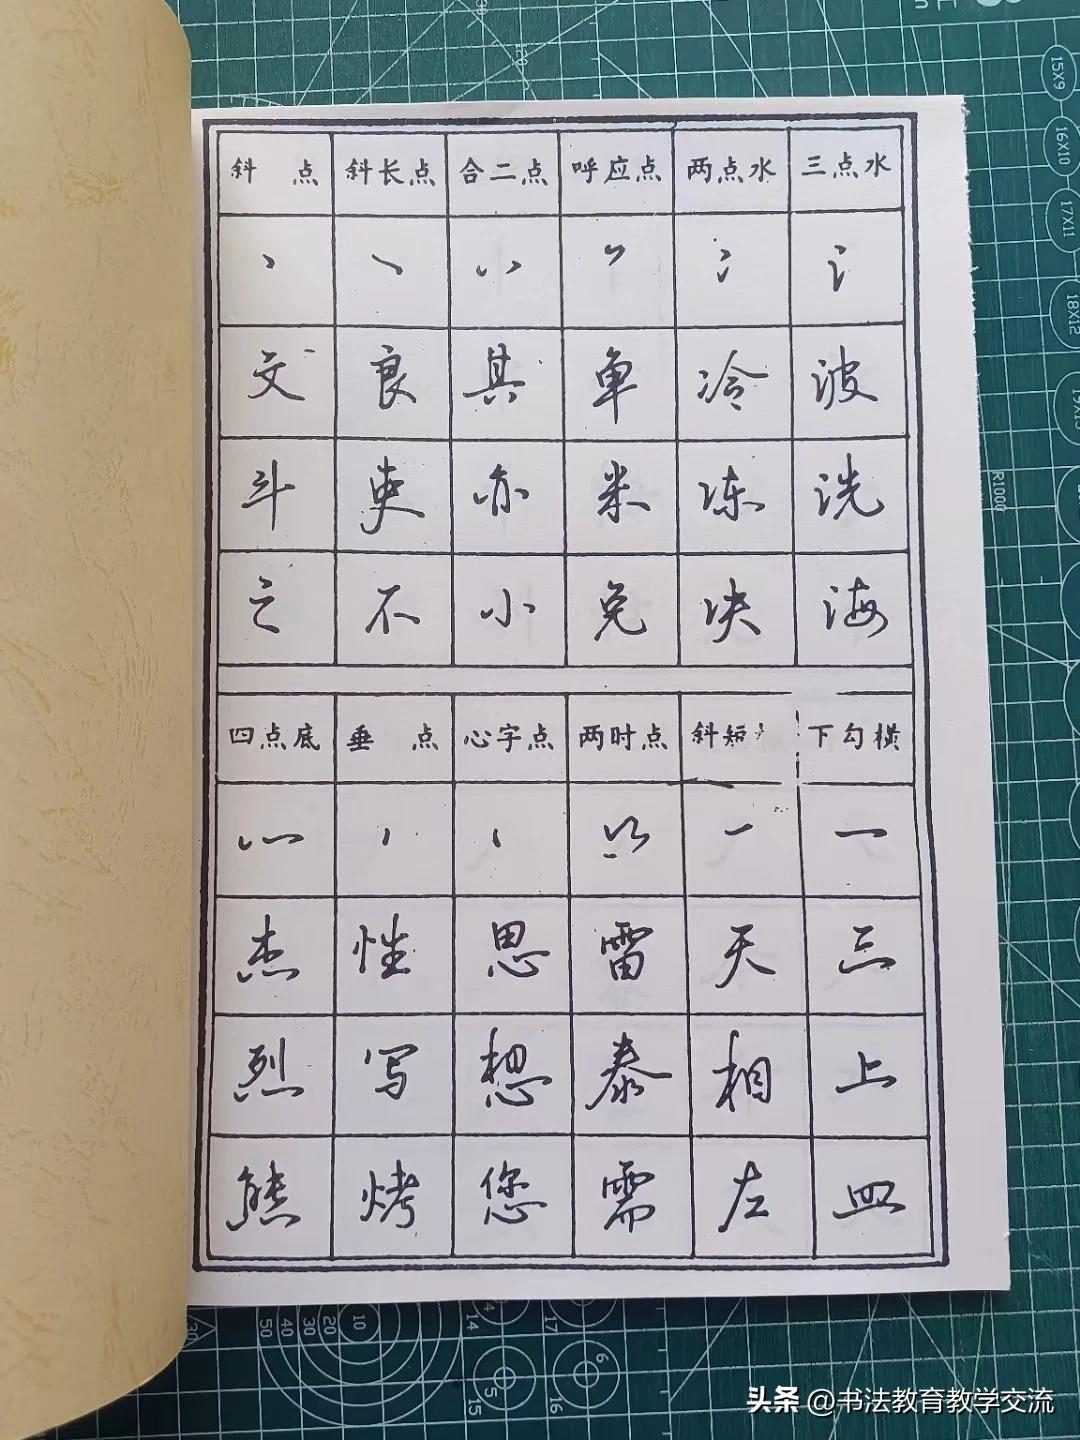 斜点 斜长点 合二点 呼应点 两点水 三点水
丶 ㇏ 丷 冫 氵
文 良 其 单 冷 波
斗 吏 亦 米 冻 洗
之 不 小 免 决 海
四点底 垂点 心字点 两时点 斜短 下勾横
一 一
杰 性 思 雷 天 三
烈 写 想 泰 相 上
熊 烤 您 需 左 皿
15X9
16X10
17X11
18X12
19X13
R1000
50 40 30 20 10
14 17
15 16
5 6
头条 @书法教育教学交流